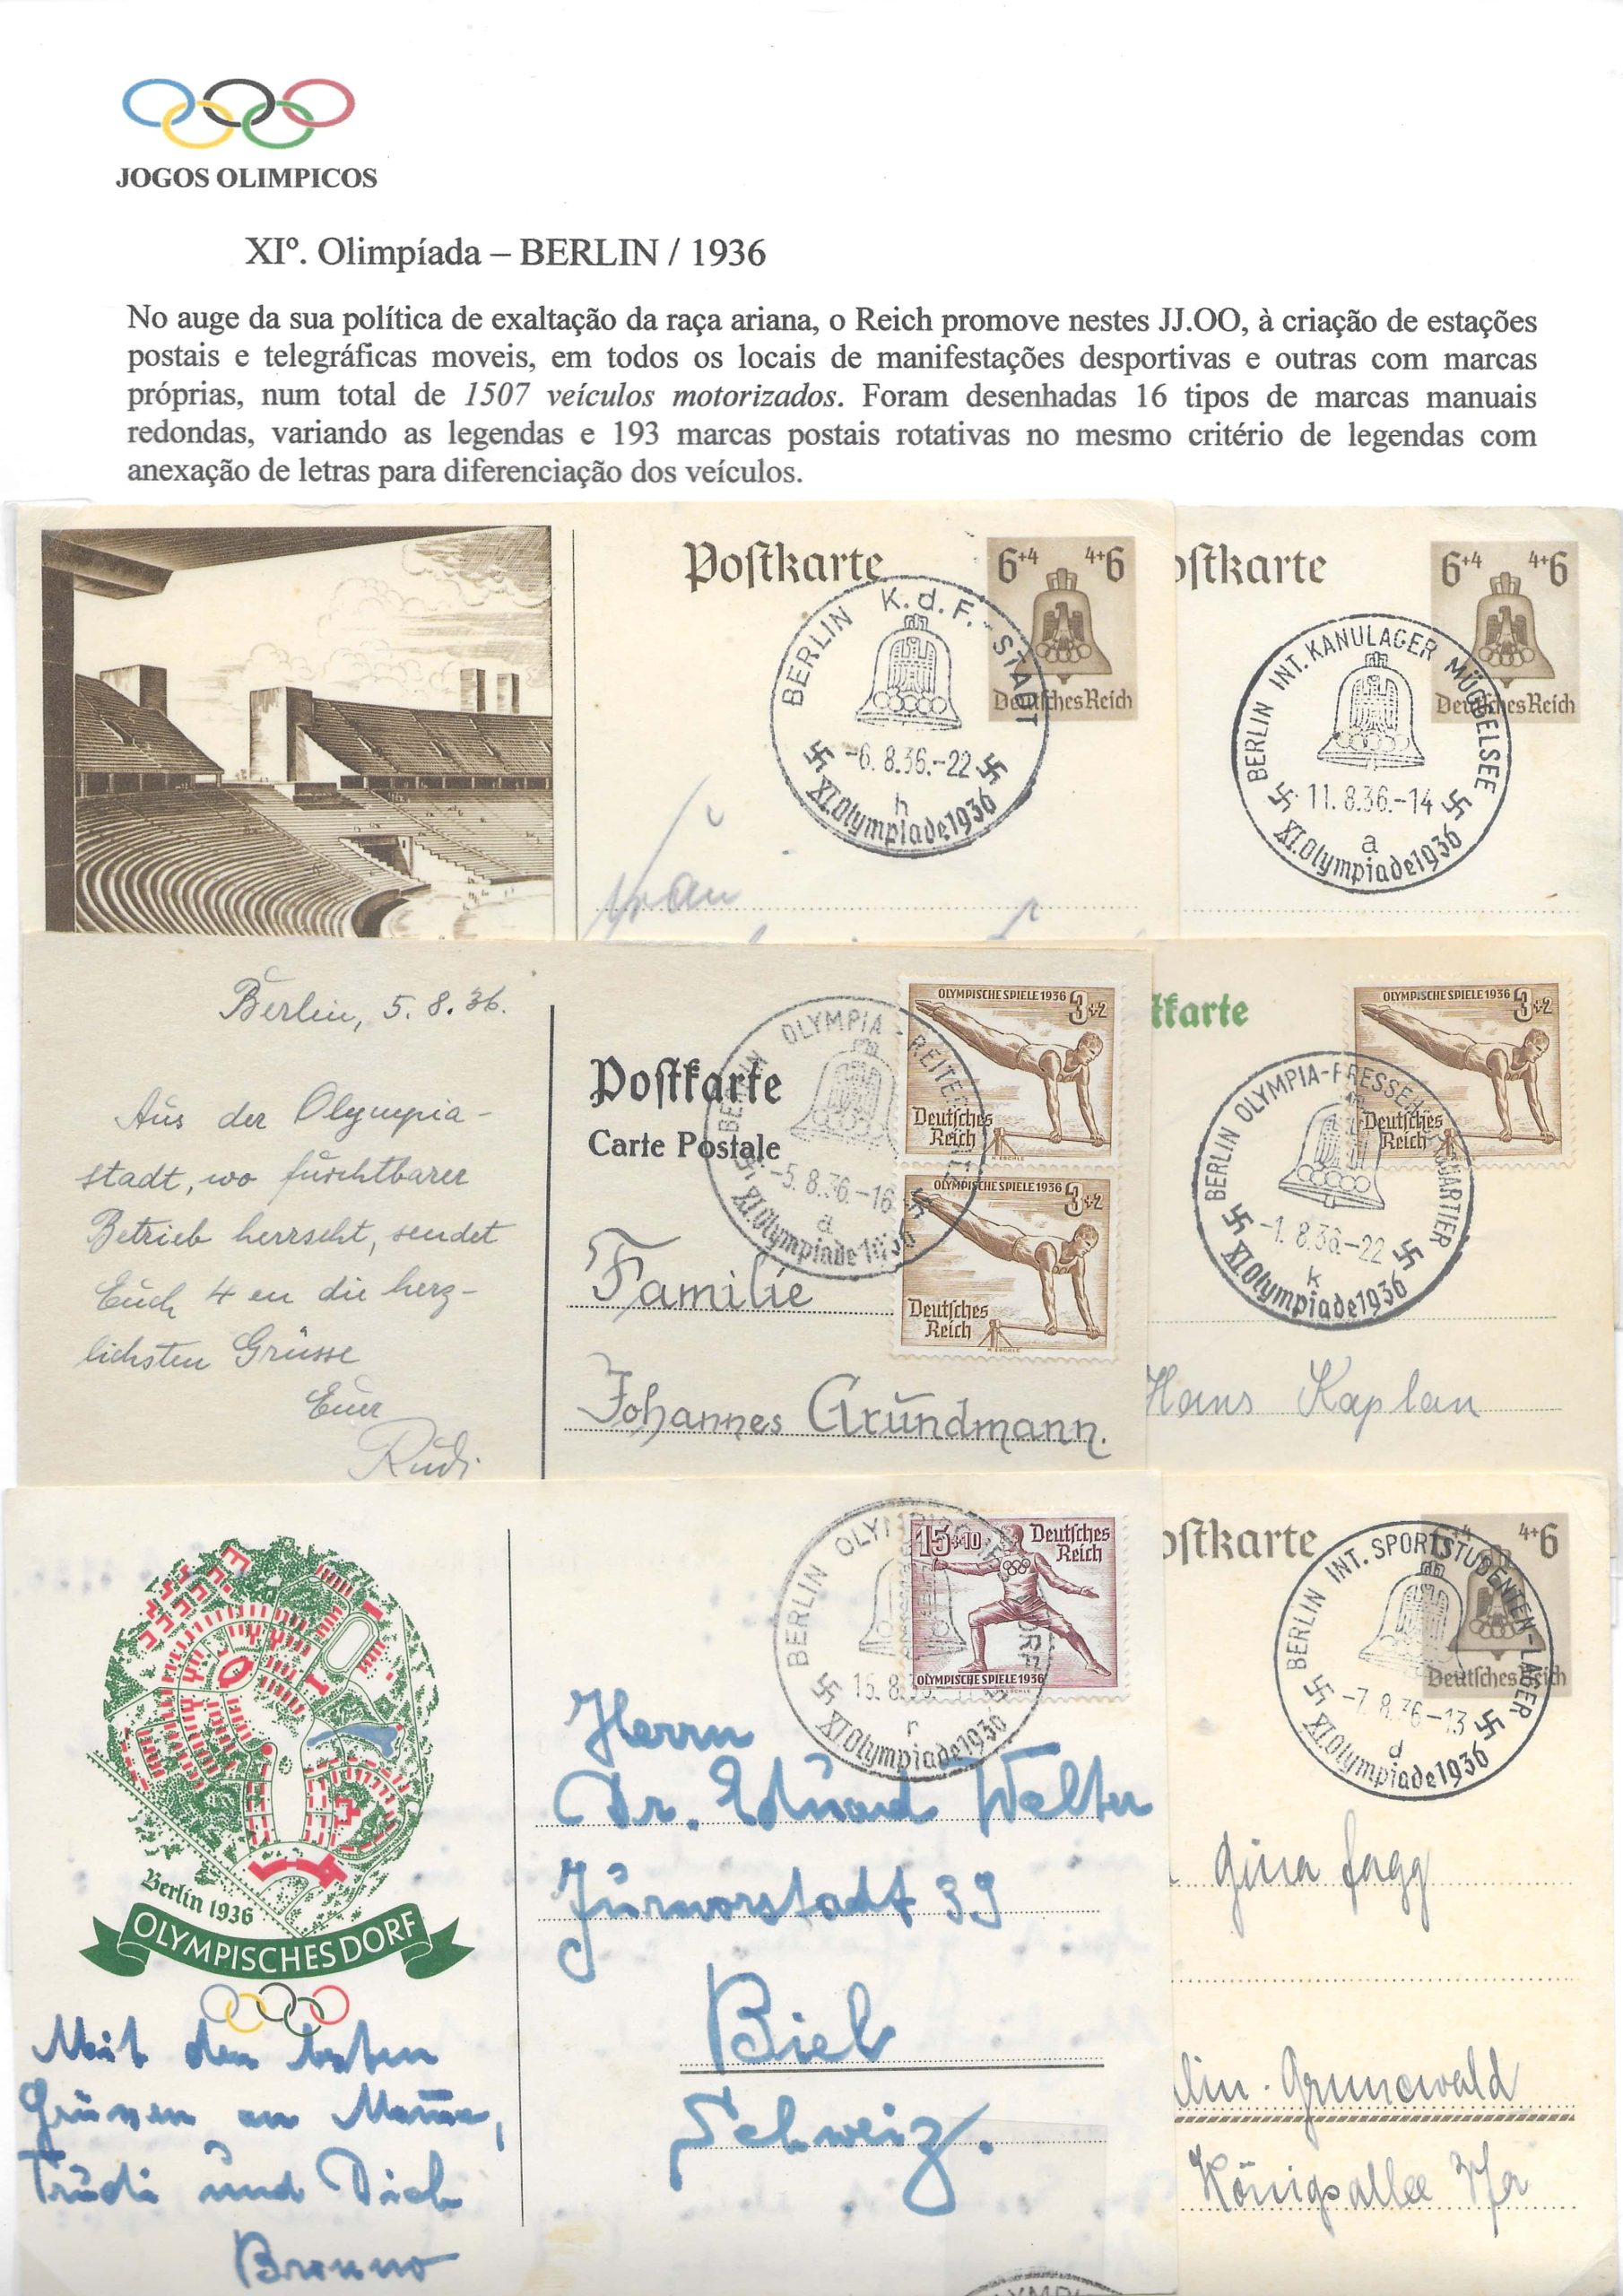 JOGOS OLIMPICOS
XIº. Olimpíada – BERLIN / 1936
No auge da sua política de exaltação da raça ariana, o Reich promove nestes JJ.OO, à criação de estações
postais e telegráficas moveis, em todos os locais de manifestações desportivas e outras com marcas
próprias, num total de 1507 veículos motorizados. Foram desenhadas 16 tipos de marcas manuais
redondas, variando as legendas e 193 marcas postais rotativas no mesmo critério de legendas com
anexação de letras para diferenciação dos veículos.
Poſtkarte
6+4 4+6
Deutſches Reich
BERLIN K.d.F.-STADT
-6.8.36.-22
h
XI.Olympiade1936
Frau
oſtkarte
6+4 4+6
Deutſches Reich
BERLIN INT. KANULAGER MÜGGELSEE
11.8.36.-14
a
XI.Olympiade1936
Berlin, 5.8.36.
Aus der Olympia-
stadt, wo furchtbarer
Betrieb herrscht, sendet
Euch 4 en die herz-
lichsten Grüsse
Euer
Rudi
Poſtkarte
Carte Postale
BERLIN OLYMPIA-REITER
-5.8.36.-16
a
XI.Olympiade1936
OLYMPISCHE SPIELE 1936 3+2
Deutſches
Reich
OLYMPISCHE SPIELE 1936 3+2
Deutſches
Reich
Familie
Johannes Grundmann.
tkarte
OLYMPISCHE SPIELE 1936 3+2
Deutſches
Reich
BERLIN OLYMPIA-PRESSEHAUPTQUARTIER
-1.8.36-22
k
XI.Olympiade1936
Hans Kaplan
Berlin 1936
OLYMPISCHES DORF
Mit den besten
Grüssen an Mama,
Trudi und Dich
Bruno
BERLIN OLYMPISCHES DORF
15.8.
r
XI.Olympiade1936
15+10 Deutſches
Reich
OLYMPISCHE SPIELE 1936
Herrn
Dr. Eduard Walter
Juravorstadt 39
Biel
Schweiz.
oſtkarte
6+4 4+6
Deutſches Reich
BERLIN INT. SPORTSTUDENTEN-LAGER
-7.8.36-13
d
XI.Olympiade1936
Gina Fagg
lin-Grunewald
Königsallee
OLYMPI